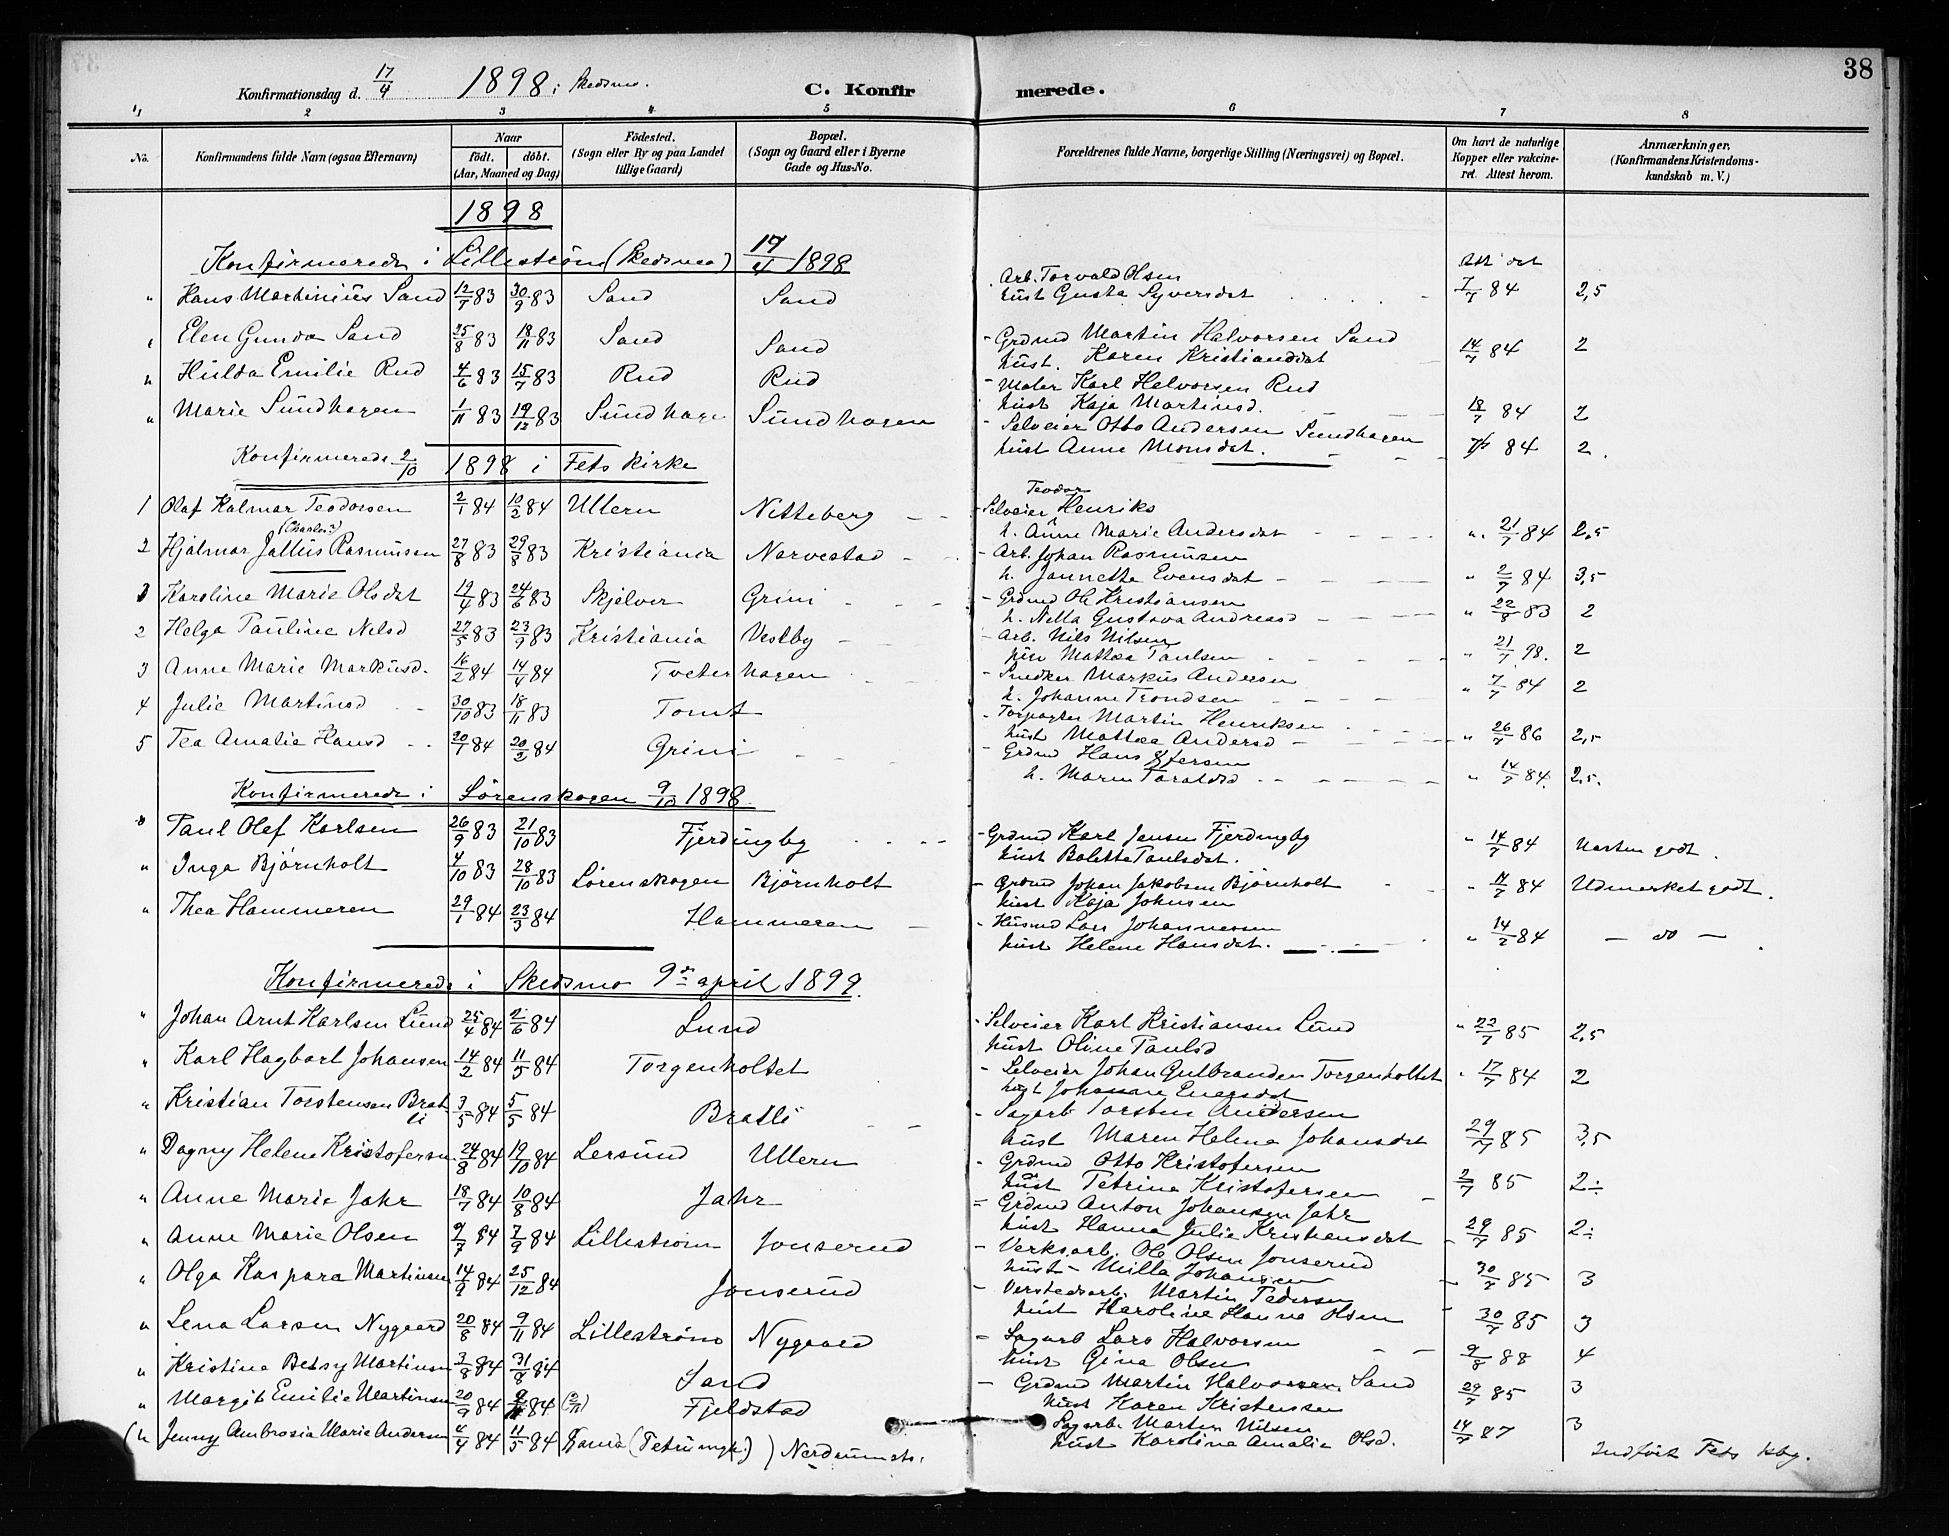 38
Konfirmationsdag d. 17/4 1898 i Skedsmo. C. Konfirmerede.
1 2 3 4 5 6 7 8
No. Konfirmandens fulde Navn (ogsaa Efternavn) Naar født. døbt. (Aar, Maaned og Dag) Fødested. (Sogn eller By og paa Landet tillige Gaard) Bopæl. (Sogn og Gaard eller i Byerne Gade og Hus-No. Forældrenes fulde Navne, borgerlige Stilling (Næringsvei) og Bopæl. Om havt de naturlige Kopper eller vakcineret. Attest herom. Anmærkninger. (Konfirmandens Kristendomskundskab m. V.)
1898
Konfirmerede i Lillestrøm (Skedsmo) 17/4 1898
" Hans Martinius Sand 12/7 83 30/9 83 Sand Sand Arb. Torvald Olsen
hust Gusta Syversdat 7/7 84 2,5
" Elen Gunda Sand 25/8 83 18/11 83 Sand Sand - Grdmd Martin Halvorsen Sand
hust. Karen Kristiansdat 14/7 84 2
" Hulda Emilie Rud 4/6 83 15/7 83 Rud Rud - Maler Karl Halvorsen Rud
hust Kaja Martinsd. 18/7 84 2
" Marie Sundhagen 1/11 83 19/12 83 Sundhagen Sundhagen - Selveier Otto Andersen Sundhagen
hust Anne Monsdat. 84 2.
Konfirmerede 2/10 1898 i Fets Kirke
1 Olaf Kalmar Teodorsen 2/1 84 10/2 84 Ullern Nitteberg - Selveier Teodor Henriks
h. Anne Marie Andersdat " 21/7 84 2,5
2 Hjalmar Julius (Charles?) Rasmussen 27/8 83 29/8 83 Kristiania Narvestad - Arb. Johan Rasmussen
h. Jannetta Evensdat - " 2/7 84 3,5
1 Karoline Marie Olsdat 19/4 83 24/6 83 Skjelver Grini - Grdmd Ole Kristiansen
h. Nella Gustava Andreasd " 22/8 83 2
2 Helga Pauline Nilsd 27/5 83 23/9 83 Kristiania Vestby - Arb. Nils Nilsen
Mathea Paulsen " 21/7 98. 2
3 Anne Marie Markusd. 16/2 84 14/4 84 Tveterhagen - Snedker Markus Andersen
h. Johanne Trondsen " 7/7 84 2
4 Julie Martinsd 30/10 83 18/11 83 Tomt - Forpagter Martin Henriksen
hust Mathea Andersd - " 26/7 86 2,5
5 Tea Amalie Hansd 20/1 84 20/2 84 Grini - Grdmd Hans
h. Maren Taraldsd " 14/7 84. 2,5.
Konfirmerede i Lørenskogen 9/10 1898
" Paul Olaf Karlsen 26/9 83 21/10 83 Fjerdingby - Grdmd Karl Jensen Fjerdingby
hust Bolette Paulsdat. " 14/7 84 Næsten godt.
" Inga Bjørnholt 4/10 83 28/10 83 Lørenskogen Bjørnholt - Grdmd Johan Jakobsen Bjørnholt
hust Kaja Johnsen " 84 Udmerket godt.
" Thea Hammeren 29/1 84 23/3 84 Hammeren - Husmd Lars Johannessen
hust Helene Hansdat. " 14/2 84 - do -
Konfirmerede i Skedsmo 9de april 1899.
" Johan Arnt Karlsen Lund 25/4 84 2/6 84 Lund - Selveier Karl Kristiansen Lund
hust Oline Paulsd " 22/7 85 2,5
" Karl Hagbart Johansen 14/2 84 11/5 84 Torgenholtet - Selveier Johan Gulbrandsen Torgenholtet
Johanne Enersdat " 17/7 84 2
" Kristian Torstensen Bratli 3/5 84 5/5 84 Bratli - Sagarb Torsten Andersen
hust Maren Helene Johansdat 29/7 85 3,5
" Dagny Helene Kristofersn 24/8 84 19/10 84 Lersund Ullern - Grdmd Otto Kristofersen
hust Petrine Kristofersen 2/7 85 2÷
" Anne Marie Jahr 18/7 84 10/8 84 Jahr - Grdmd Anton Johansen Jahr
hust Hanna Julie Kristiansdat 29/7 85 2÷
" Anne Marie Olsen 9/7 84 7/9 84 Lillestrøm Jonserud - Verksarb. Ole Olsen Jonserud
hust - Milla Johansen 30/7 85 3
" Olga Kaspara Martinsen 14/9 84 25/12 84 Jonserud - Verstedsarb. Martin Pedersen
hust Karoline Hanna Olsen 30/7 85 3
" Lena Larsen Nygaard 20/8 84 9/11 84 Lillestrøm Nygaard - Sagarb Lars Halvorsen
hust Gina Olsen 9/8 88 4
" Kristine Betsy Martinsen 3/8 84 31/8 84 Sand - Grdmd Martin Halvorsen Sand
hust Karen Kristensen 29/7 85 3
" Margit Emilie Martinsen 20/9 84 84 (2/11) Fjeldstad Sagarb. Martin Nilsen
hust Karoline Amalie Olsd. 14/7 87 3
(" Jenny Ambrosia Marie Andersen 4/4 84 11/5 84 ) Indført Fets kbg.